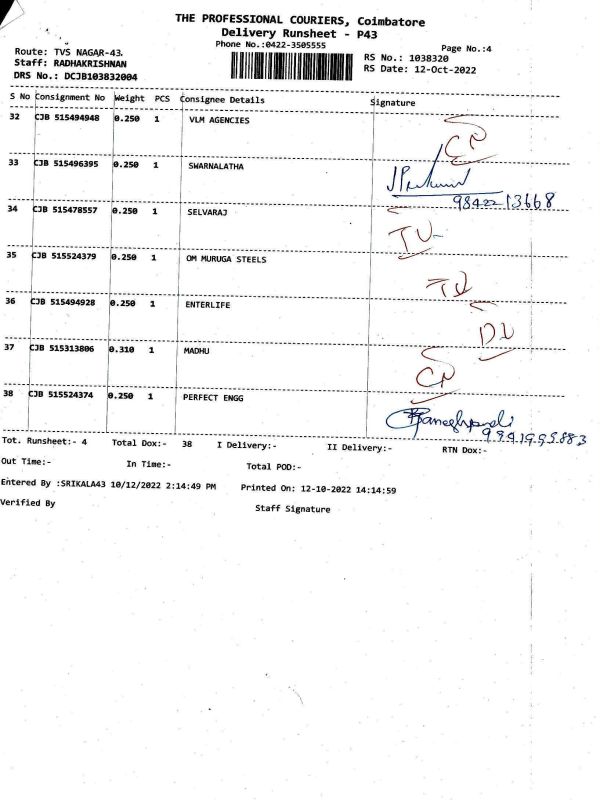 THE PROFESSIONAL COURIERS, Coimbatore
Delivery Runsheet - P43
Phone No.:0422-3505555
Page No.:4
Route: TVS NAGAR-43.
RS No.: 1038320
Staff: RADHAKRISHNAN
RS Date: 12-Oct-2022
DRS No.: DCJB103832004
S No Consignment No Weight PCS Consignee Details Signature
32 CJB 515494948 0.250 1 VLM AGENCIES
33 CJB 515496395 0.250 1 SWARNALATHA
34 CJB 515478557 0.250 1 SELVARAJ
35 CJB 515524379 0.250 1 OM MURUGA STEELS
36 CJB 515494928 0.250 1 ENTERLIFE
37 CJB 515313806 0.310 1 MADHU
38 CJB 515524374 0.250 1 PERFECT ENGG
Tot. Runsheet:- 4 Total Dox:- 38 I Delivery:- II Delivery:- RTN Dox:-
Out Time:- In Time:- Total POD:-
Entered By :SRIKALA43 10/12/2022 2:14:49 PM Printed On: 12-10-2022 14:14:59
Verified By Staff Signature